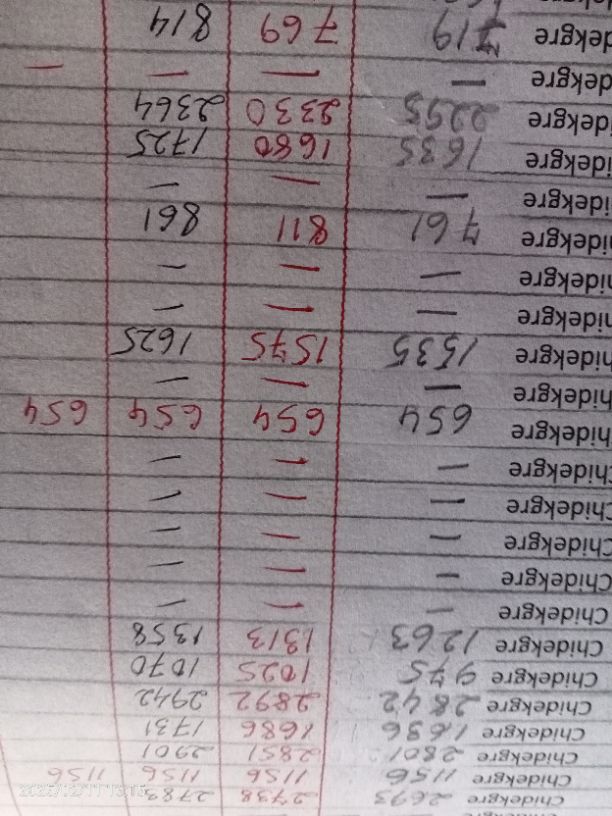 Chidekgre 2693 2738 2783
Chidekgre 1156 1156 1156 1156
Chidekgre 2801 2851 2901
Chidekgre 1636 1686 1731
Chidekgre 2842 2892 2942
Chidekgre 975 1025 1070
Chidekgre 1263 1313 1358
Chidekgre — — —
Chidekgre — — —
Chidekgre — — —
Chidekgre — — —
Chidekgre — — —
Chidekgre 654 654 654 654
hidekgre — — —
hidekgre 1535 1575 1625
hidekgre — — —
hidekgre — — —
hidekgre 761 811 861
hidekgre — — —
idekgre 1635 1680 1725
idekgre 2295 2330 2364
dekgre — — — —
dekgre 719 769 814